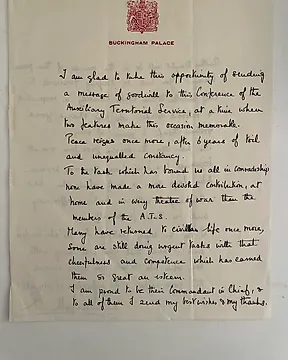 BUCKINGHAM PALACE
I am glad to take this opportunity of sending
a message of goodwill to this Conference of the
Auxiliary Territorial Service, at a time when
two features make this occasion memorable.
Peace reigns once more, after 6 years of toil
and unequalled constancy.
To the task which has bound us all in comradeship
none have made a more devoted contribution, at
home and in every theatre of war than the
members of the A.T.S.
Many have returned to civilian life once more,
some are still doing urgent tasks with that
cheerfulness and competence which has earned
them so great an esteem.
I am proud to be their Commandant in Chief, &
to all of them I send my best wishes & my thanks.